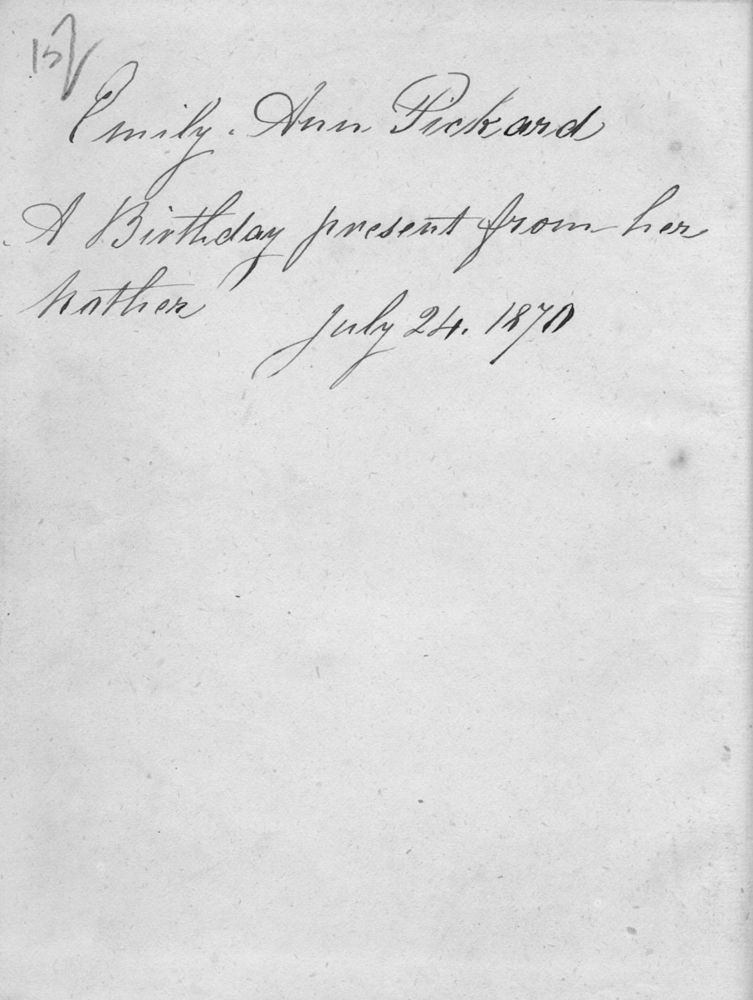 15/
Emily. Ann Pickard
A Birthday present from her
Mother July 24. 1870